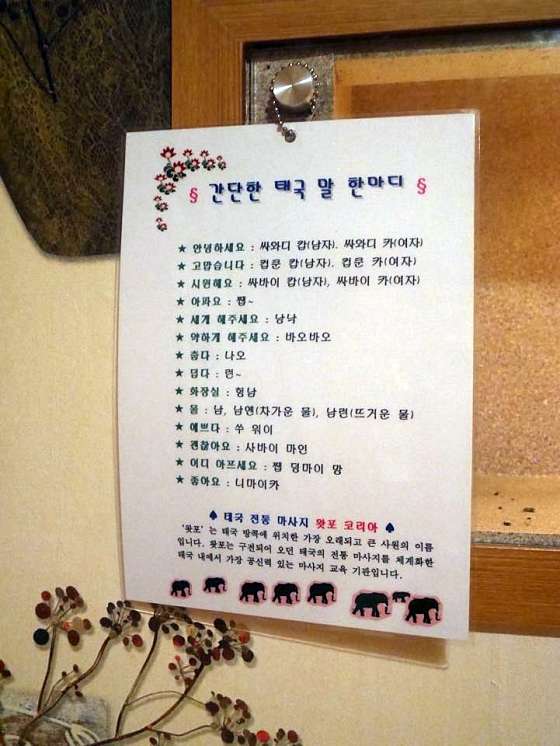 § 간단한 태국 말 한마디 §
★ 안녕하세요 : 싸와디 캅(남자). 싸와디 카(여자)
★ 고맙습니다 : 컵쿤 캅(남자). 컵쿤 카(여자)
★ 시원해요 : 싸바이 캅(남자), 싸바이 카(여자)
★ 아파요 : 쨉~
★ 세게 해주세요 : 낭낙
★ 약하게 해주세요 : 바오바오
★ 춥다 : 나오
★ 덥다 : 런~
★ 화장실 : 헝남
★ 물 : 남, 남옌(차가운 물), 남런(뜨거운 물)
★ 예쁘다 : 쑤 워이
★ 괜찮아요 : 사바이 마인
★ 어디 아프세요 : 쨉 덩마이 망
★ 좋아요 : 니마이카
♠ 태국 전통 마사지 왓포 코리아 ♠
'왓포' 는 태국 방콕에 위치한 가장 오래되고 큰 사원의 이름
입니다. 왓포는 구전되어 오던 태국의 전통 마사지를 체계화한
태국 내에서 가장 공신력 있는 마사지 교육 기관입니다.